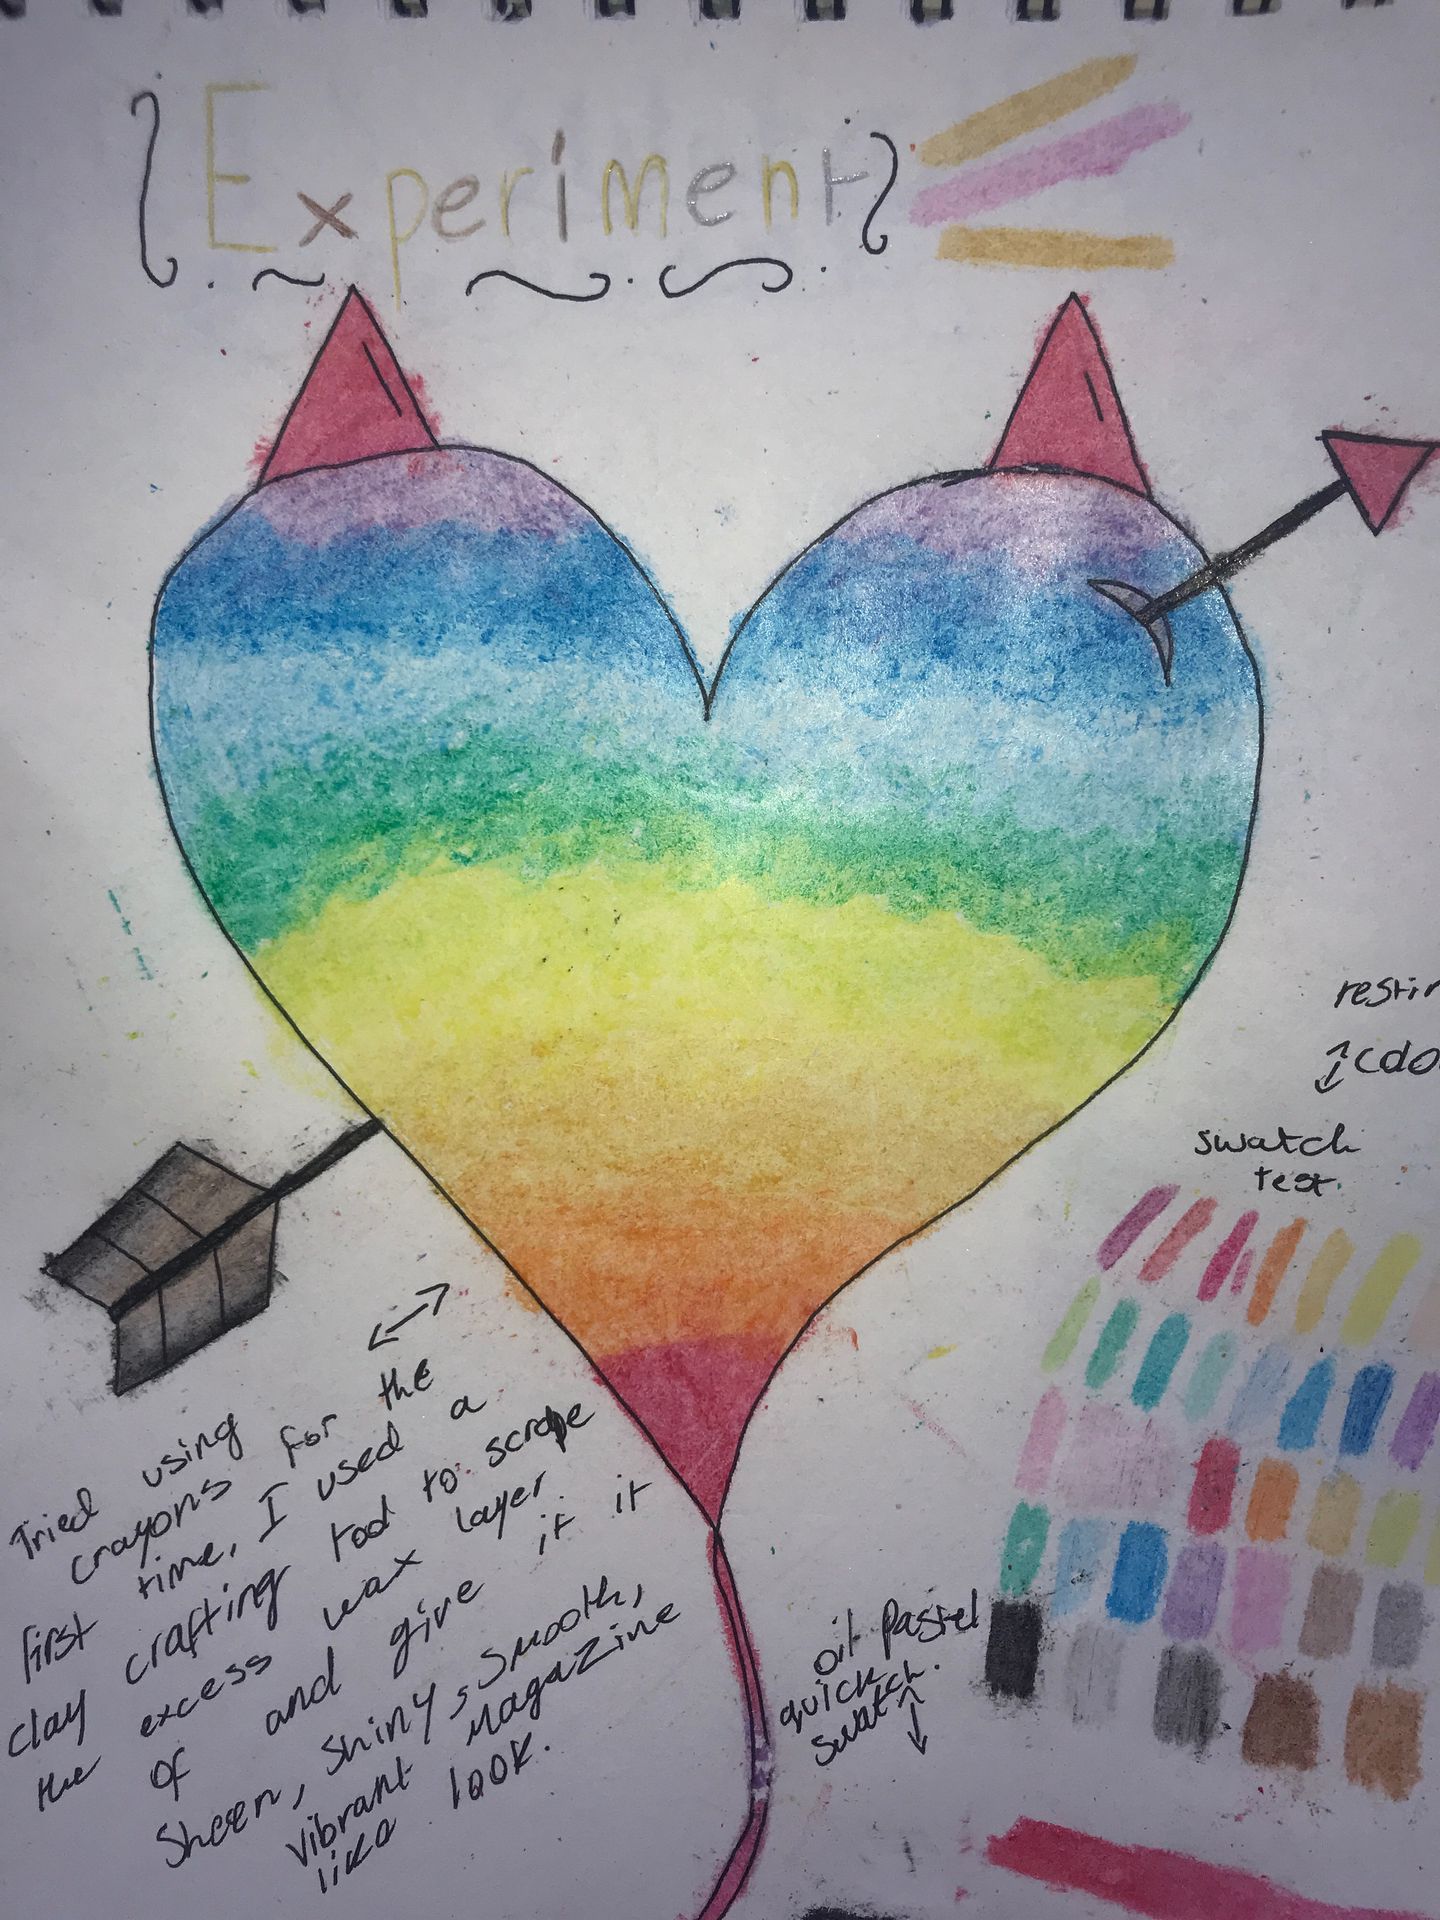 Experiment
restin
cdo
swatch
test.
Tried using
crayons for the
first time, I used a
clay crafting tool to scrape
the excess wax layer.
of and give it it
Sheen, Shiny, Smooth,
Vibrant Magazine
like look.
oil Pastel
quick
Swatch.